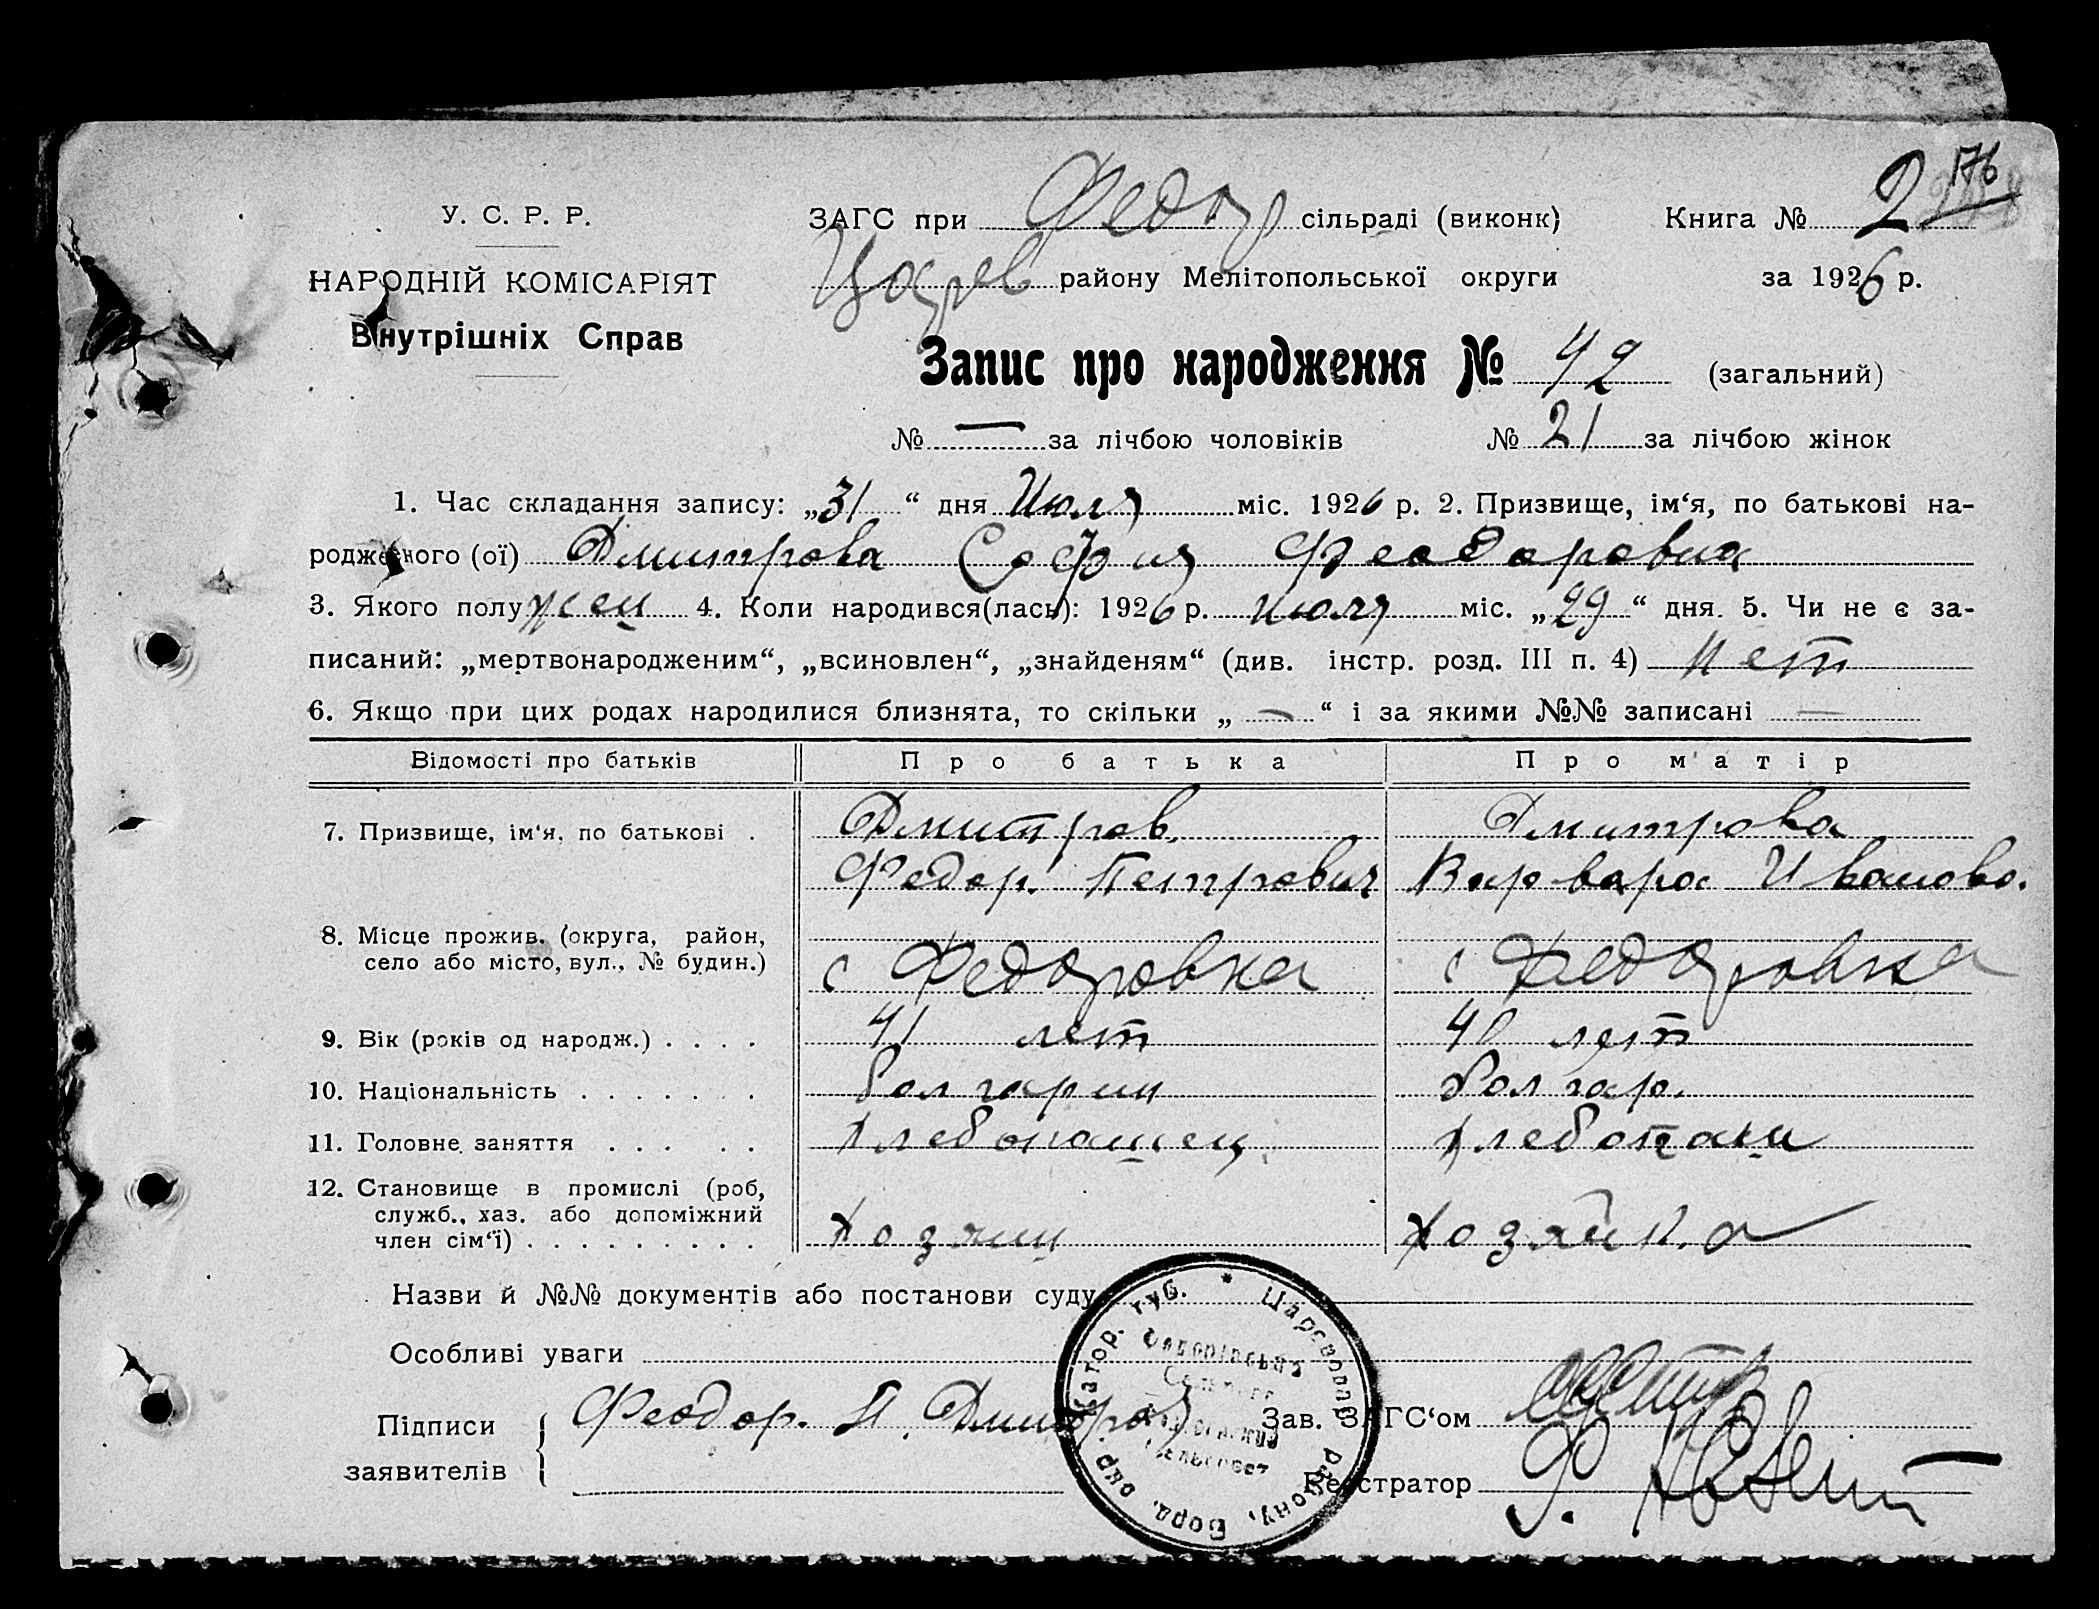 176
У. С. Р. Р.
НАРОДНІЙ КОМІСАРІЯТ
Внутрішніх Справ
ЗАГС при Федор сільраді (виконк) Книга № 2
Царев району Мелітопольської округи за 1926 р.
Запис про народження № 42 (загальний)
№ — за лічбою чоловіків № 21 за лічбою жінок
1. Час складання запису: „31“ дня Июля міс. 1926 р. 2. Призвище, ім‘я, по батькові на-
родженого (ої) Дмитрова София Феодоровна
3. Якого полу жен 4. Коли народився(лась): 1926 р. июля міс. „29“ дня. 5. Чи не є за-
писаний: „мертвонародженим“, „всиновлен“, „знайденям“ (див. інстр. розд. III п. 4) Нет
6. Якщо при цих родах народилися близнята, то скільки „ — “ і за якими №№ записані —
Відомості про батьків Про батька Про м'атір
7. Призвище, ім'я, по батькові . Дмитров. Дмитрова
Федор. Петрович Варвара Иваново.
8. Місце прожив. (округа, район,
село або місто, вул., № будин.) с Федоровка с Федоровка
9. Вік (років од народж.) . . . . 41 лет 40 лет
10. Національність . . . . . . . болгарин болгар.
11. Головне заняття . . . . . хлебопашец хлебопаш
12. Становище в промислі (роб,
служб., хаз. або допоміжний
член сім‘ї) . . . . . . . . . хозяин хозяйка
Назви й №№ документів або постанови суду
Особливі уваги
Підписи
заявителів
Феодор. П. Дмитров
Зав. ЗАГС‘ом
Реєстратор Ф.
* Царевовар району, Борд. окр. Катор. губ.